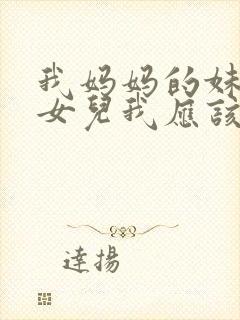 我妈妈的妹
女兒我應該
達揚